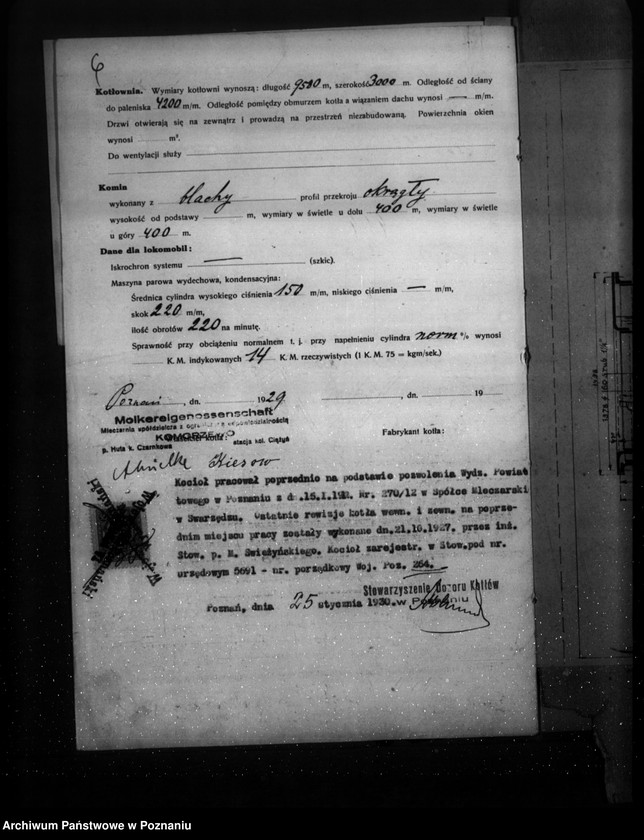 6
Kotłownia. Wymiary kotłowni wynoszą: długość 9500 m, szerokość 3000 m. Odległość od ściany
do paleniska 4200 m/m. Odległość pomiędzy obmurzem kotła a wiązaniem dachu wynosi — m/m.
Drzwi otwierają się na zewnątrz i prowadzą na przestrzeń niezabudowaną. Powierzchnia okien
wynosi m².
Do wentylacji służy
Komin
wykonany z blachy profil przekroju okrągły
wysokość od podstawy m, wymiary w świetle u dołu 400 m, wymiary w świetle
u góry 400 m.
Dane dla lokomobil:
Iskrochron systemu — (szkic).
Maszyna parowa wydechowa, kondensacyjna:
Średnica cylindra wysokiego ciśnienia 150 m/m, niskiego ciśnienia — m/m,
skok 220 m/m,
ilość obrotów 220 na minutę.
Sprawność przy obciążeniu normalnem t. j. przy napełnieniu cylindra norm % wynosi
K. M. indykowanych 14 K. M. rzeczywistych (1 K. M. 75 = kgm/sek.)
Poznań, dn. 1929 , dn. 19
Molkereigenossenschaft
Mleczarnia spółdzielcza z ograniczoną odpowiedzialnością
KOMORZEWO
p. Huta k. Czarnkowa stacja kol. Ciążyń
Fabrykant kotła:
Kiesow
Kocioł pracował poprzednio na podstawie pozwolenia Wydz. Powiat
towego w Poznaniu z dn. Nr. 270/12 w Spółce Mleczarski
w Swarzędzu. Ostatnie rewizje kotła wewn. i zewn. na poprze-
dnim miejscu pracy zostały wykonane dn. 21.10.1927. przez inż.
Stow. p. M. Świeżyńskiego. Kocioł zarejestr. w Stow. pod nr.
urzędowym 5691 - nr. porządkowy Woj. Poz. 264.
Stowarzyszenie Dozoru Kotłów
Poznań, dnia 25 stycznia 1930. w Poznaniu
Archiwum Państwowe w Poznaniu